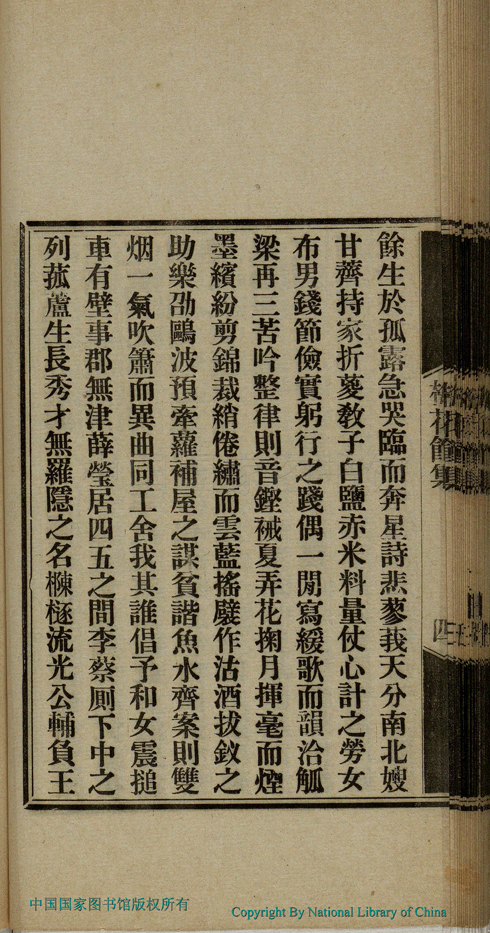 餘生於孤露急哭臨而奔星詩悲蓼莪天分南北嫂
甘薺持家折葼敎子白鹽赤米料量仗心計之勞女
布男錢節儉實躬行之踐偶一閒寫緩歌而韻洽觚
梁再三苦吟整律則音鏗裓夏弄花掬月揮毫而煙
墨繽紛剪錦裁綃倦繡而雲藍搖襞作沽酒拔釵之
助樂劭鷗波預牽蘿補屋之謀貧諧魚水齊案則雙
烟一氣吹簫而異曲同工舍我其誰倡予和女震搥
車有壁事郡無津薛瑩居四五之間李蔡厠下中之
列菰蘆生長秀才無羅隱之名楝極流光公輔負王
花館集
四
中国国家图书馆版权所有
Copyright By National Library of China